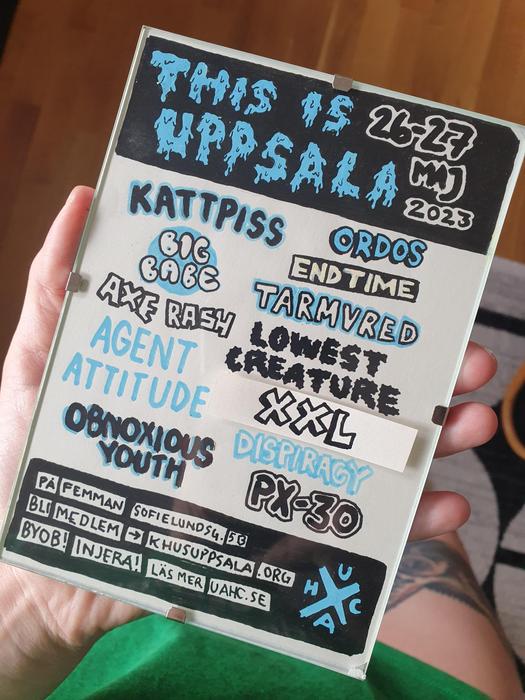 THIS IS
UPPSALA
26-27
MAJ
2023
KATTPISS
BIG
BABE
AXE RASH
AGENT
ATTITUDE
OBNOXIOUS
YOUTH
ORDOS
ENDTIME
TARMVRED
LOWEST
CREATURE
XXL
DISPIRACY
PX-30
PÅ FEMMAN SOFIELUNDSG. 5B
BLI MEDLEM → KHUSUPPSALA.ORG
BYOB! INJERA! LÄS MER UAHC.SE
U
H C
A